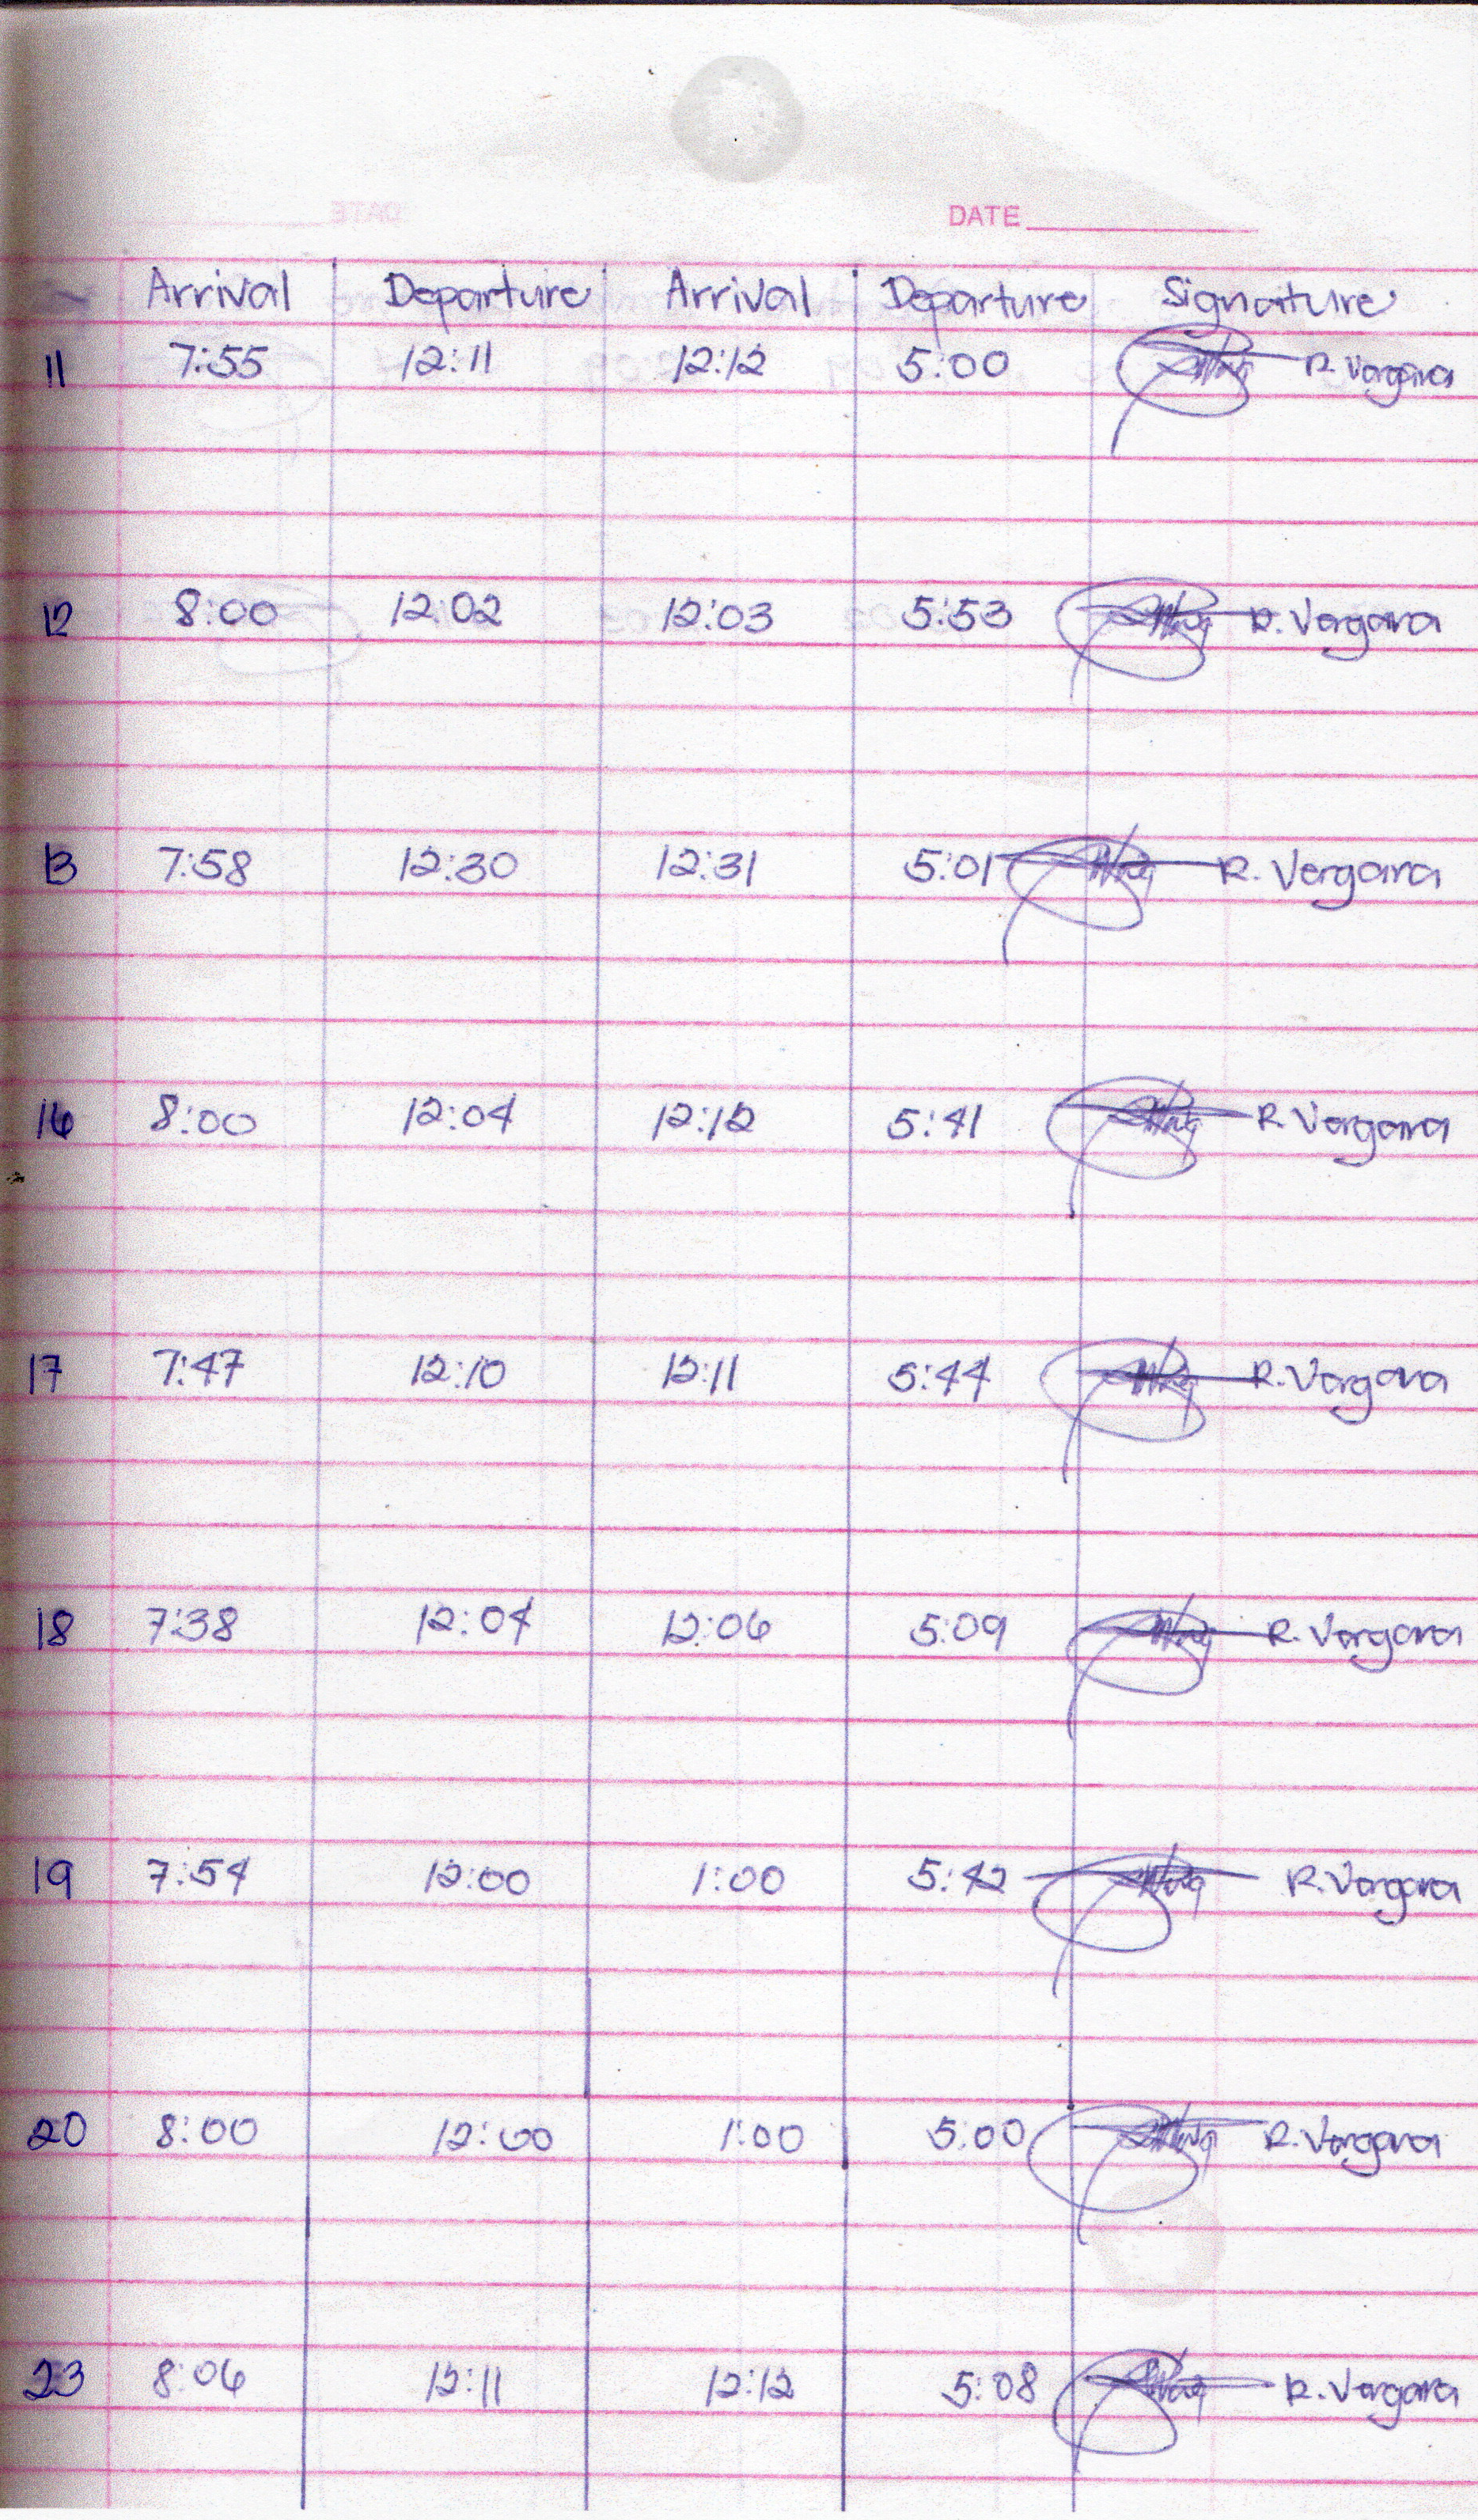 DATE
Arrival Departure Arrival Departure Signature
11 7:55 12:11 12:12 5:00 R. Vergara
12 8:00 12:02 12:03 5:53 R. Vergara
13 7:58 12:30 12:31 5:01 R. Vergara
16 8:00 12:04 12:12 5:41 R. Vergara
17 7:47 12:10 12:11 5:44 R. Vergara
18 7:38 12:04 12:06 5:09 R. Vergara
19 7:54 12:00 1:00 5:42 R. Vergara
20 8:00 12:00 1:00 5:00 R. Vergara
23 8:06 12:11 12:12 5:08 R. Vergara